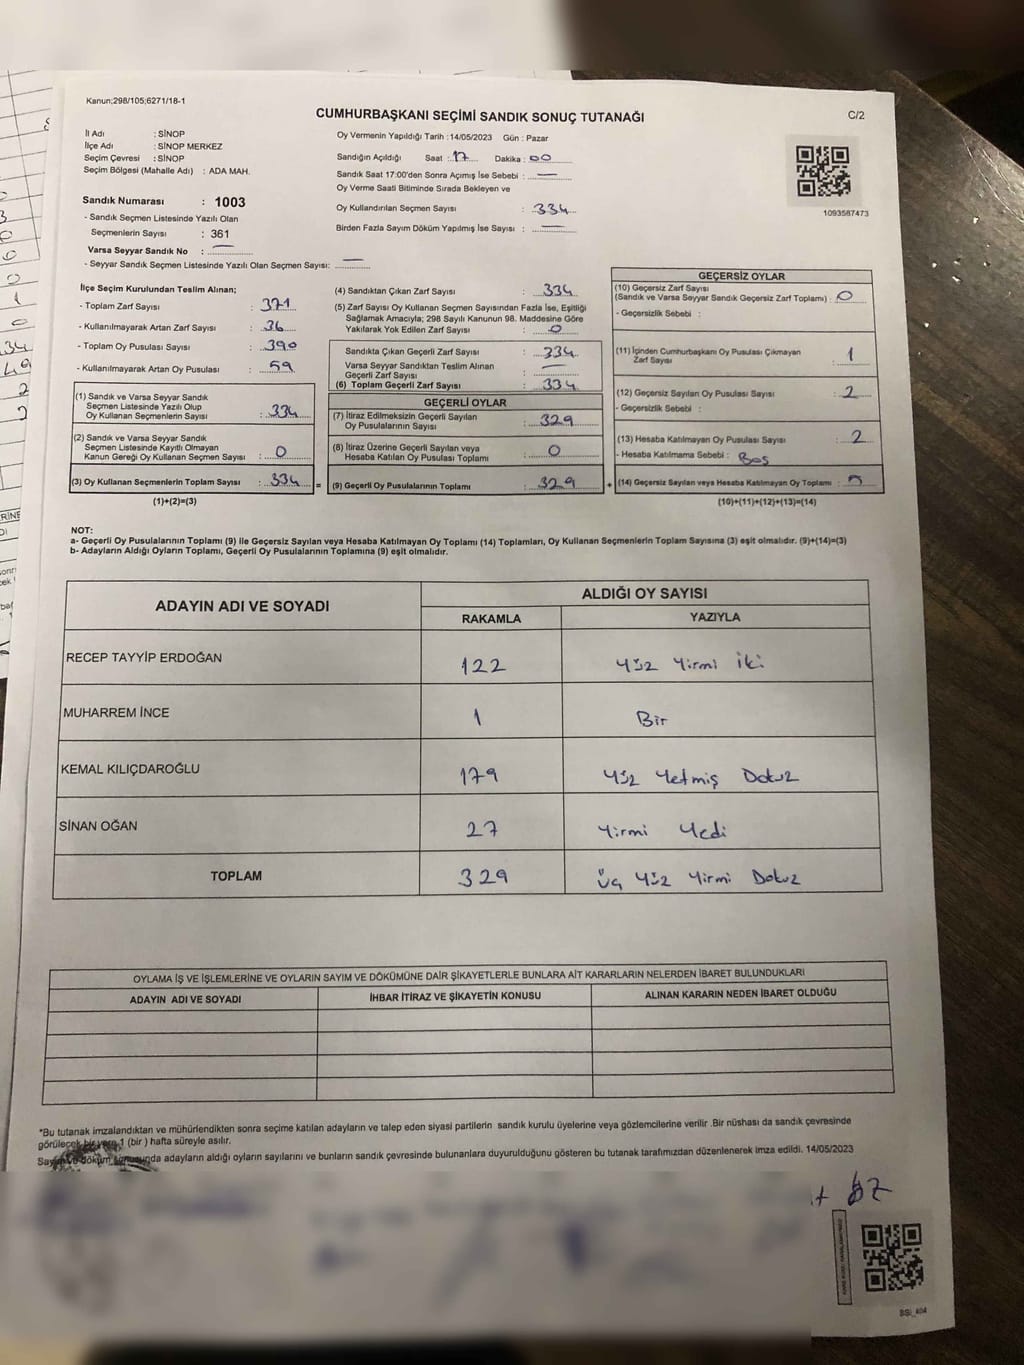 Kanun;298/105;6271/18-1
CUMHURBAŞKANI SEÇİMİ SANDIK SONUÇ TUTANAĞI
C/2
İl Adı : SİNOP
İlçe Adı : SİNOP MERKEZ
Seçim Çevresi : SİNOP
Seçim Bölgesi (Mahalle Adı) : ADA MAH.
Sandık Numarası : 1003
- Sandık Seçmen Listesinde Yazılı Olan
Seçmenlerin Sayısı : 361
Varsa Seyyar Sandık No : —
- Seyyar Sandık Seçmen Listesinde Yazılı Olan Seçmen Sayısı: —
Oy Vermenin Yapıldığı Tarih :14/05/2023 Gün : Pazar
Sandığın Açıldığı Saat : 17 Dakika : 00
Sandık Saat 17:00'den Sonra Açımış İse Sebebi : —
Oy Verme Saati Bitiminde Sırada Bekleyen ve
Oy Kullandırılan Seçmen Sayısı : 334
Birden Fazla Sayım Döküm Yapılmış İse Sayısı : —
1093587473
İlçe Seçim Kurulundan Teslim Alınan;
- Toplam Zarf Sayısı : 371
- Kullanılmayarak Artan Zarf Sayısı : 36
- Toplam Oy Pusulası Sayısı : 390
- Kullanılmayarak Artan Oy Pusulası : 59
(1) Sandık ve Varsa Seyyar Sandık
Seçmen Listesinde Yazılı Olup
Oy Kullanan Seçmenlerin Sayısı : 334
(2) Sandık ve Varsa Seyyar Sandık
Seçmen Listesinde Kayıtlı Olmayan
Kanun Gereği Oy Kullanan Seçmen Sayısı : 0
(3) Oy Kullanan Seçmenlerin Toplam Sayısı : 334 =
(1)+(2)=(3)
(4) Sandıktan Çıkan Zarf Sayısı : 334
(5) Zarf Sayısı Oy Kullanan Seçmen Sayısından Fazla İse, Eşitliği
Sağlamak Amacıyla; 298 Sayılı Kanunun 98. Maddesine Göre
Yakılarak Yok Edilen Zarf Sayısı : 0
Sandıkta Çıkan Geçerli Zarf Sayısı : 334
Varsa Seyyar Sandıktan Teslim Alınan
Geçerli Zarf Sayısı : —
(6) Toplam Geçerli Zarf Sayısı : 334
GEÇERLİ OYLAR
(7) İtiraz Edilmeksizin Geçerli Sayılan
Oy Pusulalarının Sayısı : 329
(8) İtiraz Üzerine Geçerli Sayılan veya
Hesaba Katılan Oy Pusulası Toplamı : 0
(9) Geçerli Oy Pusulalarının Toplamı : 329 +
GEÇERSİZ OYLAR
(10) Geçersiz Zarf Sayısı
(Sandık ve Varsa Seyyar Sandık Geçersiz Zarf Toplamı) : 0
- Geçersizlik Sebebi :
(11) İçinden Cumhurbaşkanı Oy Pusulası Çıkmayan
Zarf Sayısı : 1
(12) Geçersiz Sayılan Oy Pusulası Sayısı : 2
- Geçersizlik Sebebi :
(13) Hesaba Katılmayan Oy Pusulası Sayısı : 2
- Hesaba Katılmama Sebebi : Boş
(14) Geçersiz Sayılan veya Hesaba Katılmayan Oy Toplamı :
(10)+(11)+(12)+(13)=(14)
NOT:
a- Geçerli Oy Pusulalarının Toplamı (9) ile Geçersiz Sayılan veya Hesaba Katılmayan Oy Toplamı (14) Toplamları, Oy Kullanan Seçmenlerin Toplam Sayısına (3) eşit olmalıdır. (9)+(14)=(3)
b- Adayların Aldığı Oyların Toplamı, Geçerli Oy Pusulalarının Toplamına (9) eşit olmalıdır.
ADAYIN ADI VE SOYADI
ALDIĞI OY SAYISI
RAKAMLA YAZIYLA
RECEP TAYYİP ERDOĞAN 122 Yüz Yirmi iki
MUHARREM İNCE 1 Bir
KEMAL KILIÇDAROĞLU 179 Yüz Yetmiş Dokuz
SİNAN OĞAN 27 Yirmi Yedi
TOPLAM 329 Üç Yüz Yirmi Dokuz
OYLAMA İŞ VE İŞLEMLERİNE VE OYLARIN SAYIM VE DÖKÜMÜNE DAİR ŞİKAYETLERLE BUNLARA AİT KARARLARIN NELERDEN İBARET BULUNDUKLARI
ADAYIN ADI VE SOYADI İHBAR İTİRAZ VE ŞİKAYETİN KONUSU ALINAN KARARIN NEDEN İBARET OLDUĞU
*Bu tutanak imzalandıktan ve mühürlendikten sonra seçime katılan adayların ve talep eden siyasi partilerin sandık kurulu üyelerine veya gözlemcilerine verilir .Bir nüshası da sandık çevresinde
görülecek bir yere 1 (bir ) hafta süreyle asılır.
Sayım ve döküm sonucunda adayların aldığı oyların sayılarını ve bunların sandık çevresinde bulunanlara duyurulduğunu gösteren bu tutanak tarafımızdan düzenlenerek imza edildi. 14/05/2023